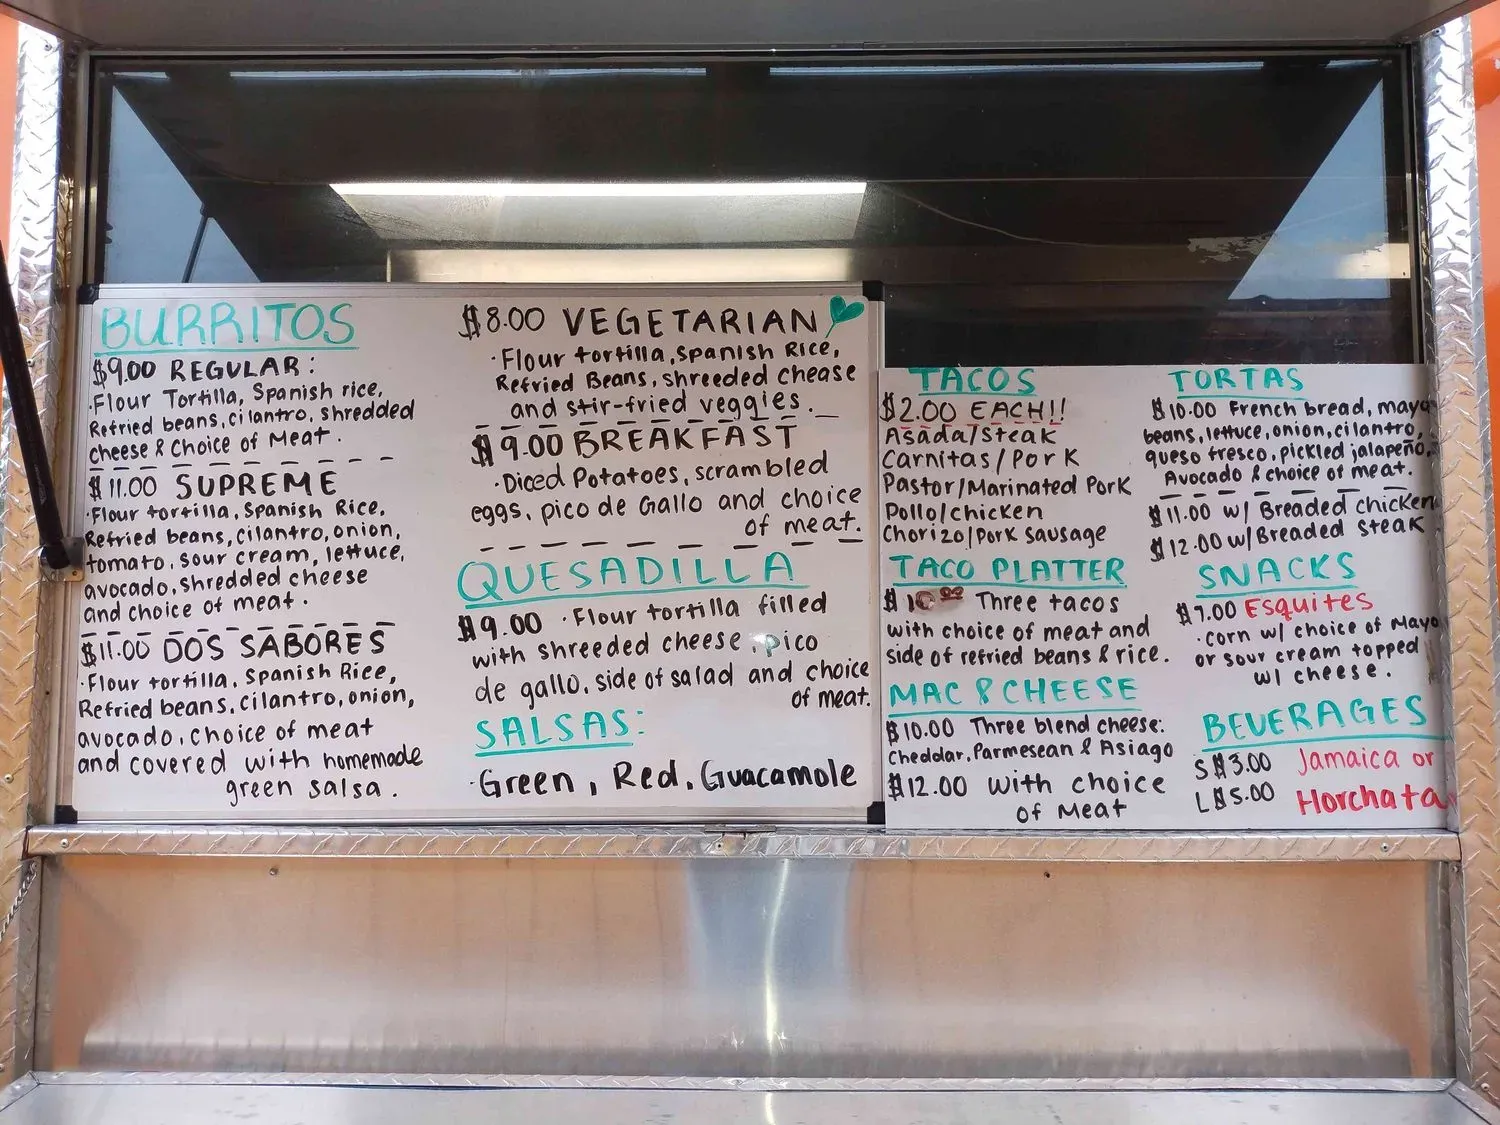 BURRITOS
$9.00 REGULAR:
·Flour Tortilla, Spanish rice,
Refried beans, cilantro, shredded
cheese & Choice of Meat.
$11.00 SUPREME
·Flour tortilla, Spanish Rice,
Refried beans, cilantro, onion,
tomato, sour cream, lettuce,
avocado, shredded cheese
and choice of meat.
$11.00 DOS SABORES
·Flour tortilla, Spanish Rice,
Refried beans, cilantro, onion,
avocado, choice of meat
and covered with homemade
green salsa.
$8.00 VEGETARIAN
·Flour tortilla, Spanish Rice,
Refried Beans, shreeded chease
and stir-fried veggies.
$9.00 BREAKFAST
·Diced Potatoes, scrambled
eggs, pico de Gallo and choice
of meat.
QUESADILLA
$9.00 ·Flour tortilla filled
with shreeded cheese, pico
de gallo, side of salad and choice
of meat.
SALSAS:
·Green, Red, Guacamole
TACOS
$2.00 EACH!!
Asada/Steak
Carnitas/Pork
Pastor/Marinated Pork
Pollo/chicken
Chorizo/Pork Sausage
TACO PLATTER
$10.00 Three tacos
with choice of meat and
side of refried beans & rice.
MAC & CHEESE
$10.00 Three blend cheese:
Cheddar, Parmesean & Asiago
$12.00 with choice
of Meat
TORTAS
$10.00 French bread, mayo
beans, lettuce, onion, cilantro,
queso fresco, pickled jalapeño,
Avocado & choice of meat.
$11.00 w/ Breaded chicken
$12.00 w/Breaded steak
SNACKS
$7.00 Esquites
·corn w/ choice of Mayo
or sour cream topped
w/ cheese.
BEVERAGES
S $3.00 Jamaica or
L $5.00 Horchata